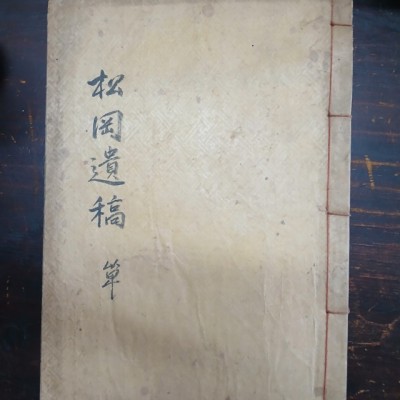 松岡遺稿 單